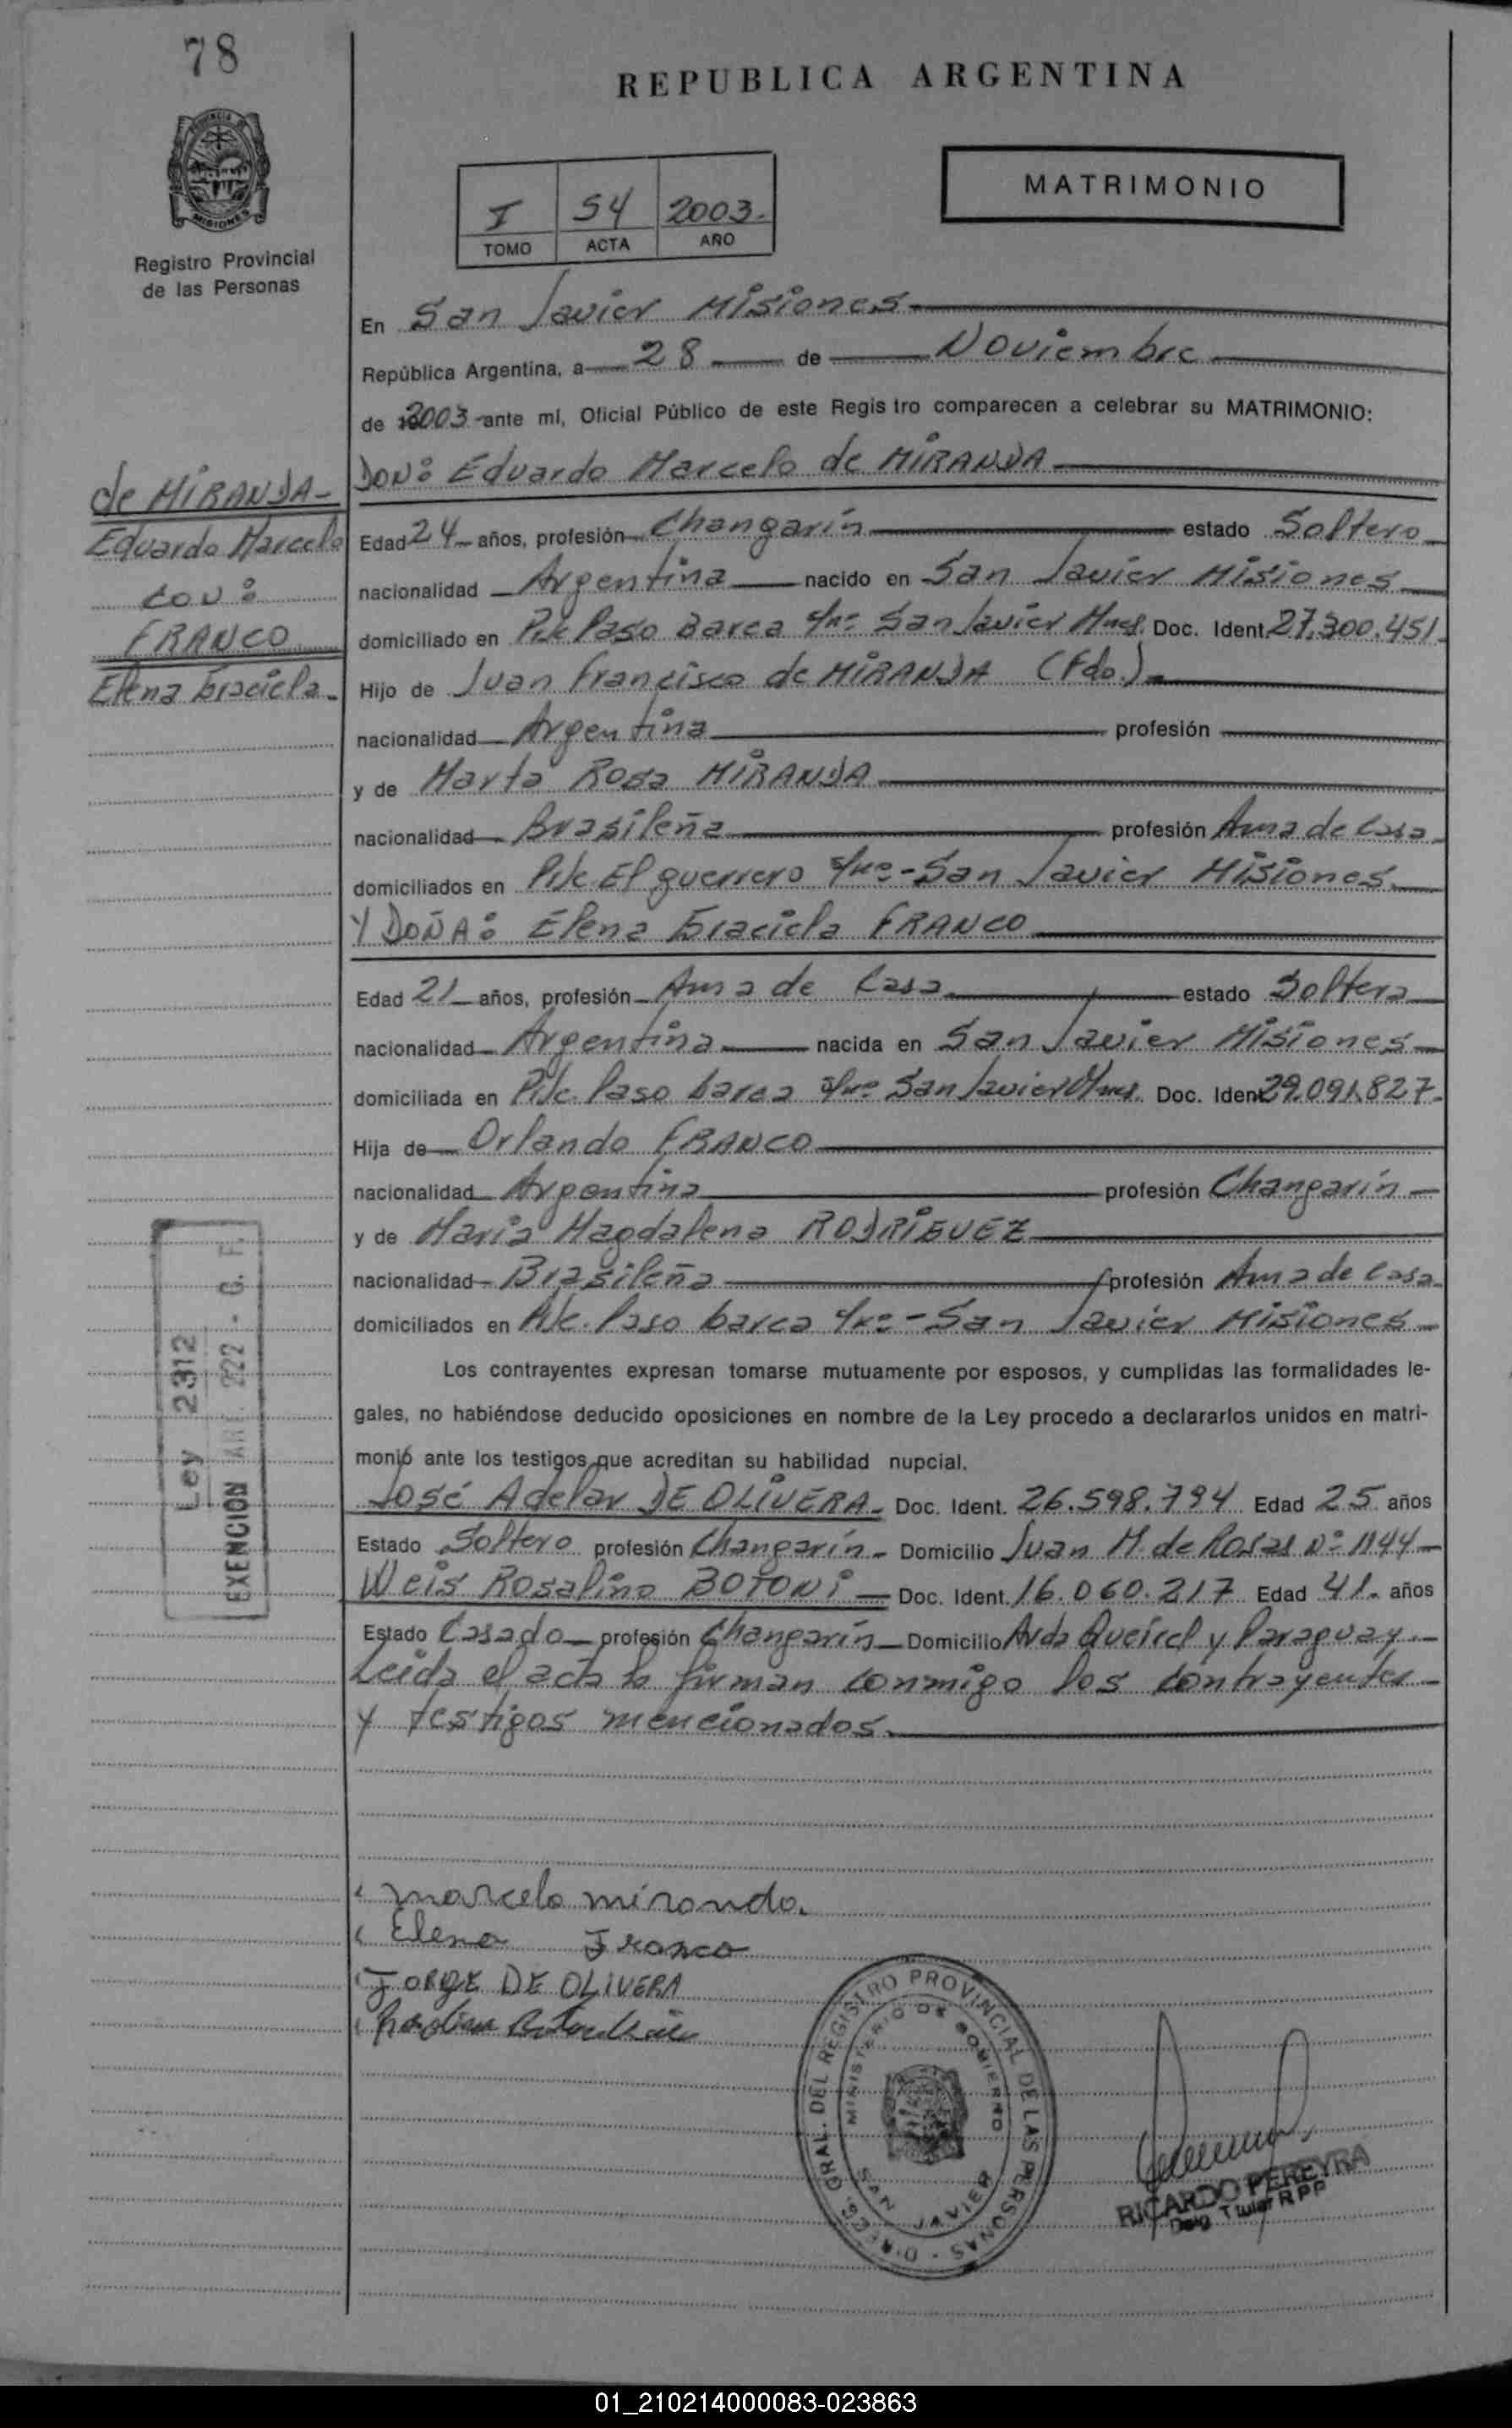 78
REPUBLICA ARGENTINA
MATRIMONIO
I 54 2003.
TOMO ACTA AÑO
PROVINCIA DE
MISIONES
Registro Provincial
de las Personas
En San Javier Misiones
República Argentina, a 28 de Noviembre
de 2003 ante mí, Oficial Público de este Regis tro comparecen a celebrar su MATRIMONIO:
DON: Eduardo Marcelo de MIRANDA
de MIRANDA
Eduardo Marcelo
con:
FRANCO
Elena Graciela.
Edad 24 años, profesión Changarín estado Soltero
nacionalidad Argentina nacido en San Javier Misiones
domiciliado en Pje Paso Barca s/nº San Javier Mnes. Doc. Ident. 27.300.451.
Hijo de Juan Francisco de MIRANDA (Fdo.)
nacionalidad Argentina profesión
y de Marta Rosa MIRANDA
nacionalidad Brasileña profesión Ama de Casa
domiciliados en Pje El guerrero s/nº - San Javier Misiones
Y DOÑA: Elena Graciela FRANCO
Edad 21 años, profesión Ama de Casa estado Soltera
nacionalidad Argentina nacida en San Javier Misiones
domiciliada en Pje. Paso barca s/nº San Javier Mnes. Doc. Ident 29.091.827.
Hija de Orlando FRANCO
nacionalidad Argentina profesión Changarín
y de María Magdalena RODRIGUEZ
nacionalidad Brasileña profesión Ama de Casa
domiciliados en Pje. Paso barca s/nº - San Javier Misiones
Los contrayentes expresan tomarse mutuamente por esposos, y cumplidas las formalidades le-
gales, no habiéndose deducido oposiciones en nombre de la Ley procedo a declararlos unidos en matri-
monio ante los testigos que acreditan su habilidad nupcial.
Ley 2312
EXENCION ART. 222 - G. F.
José Adelar DE OLIVERA Doc. Ident. 26.598.794 Edad 25 años
Estado Soltero profesión Changarín Domicilio Juan M. de Rosas Nº 1144
Weis Rosalino BOTONI Doc. Ident. 16.060.217 Edad 41. años
Estado Casado profesión Changarín Domicilio Avda Queirel y Paraguay.
Leída el acta la firman conmigo los contrayentes
y testigos mencionados.
marcelo miranda.
Elena Franco
JORGE DE OLIVERA
DIREC. GRAL. DEL REGISTRO PROVINCIAL DE LAS PERSONAS
MINISTERIO DE GOBIERNO
SAN JAVIER
RICARDO PEREYRA
Deleg. Titular R P P
01_210214000083-023863